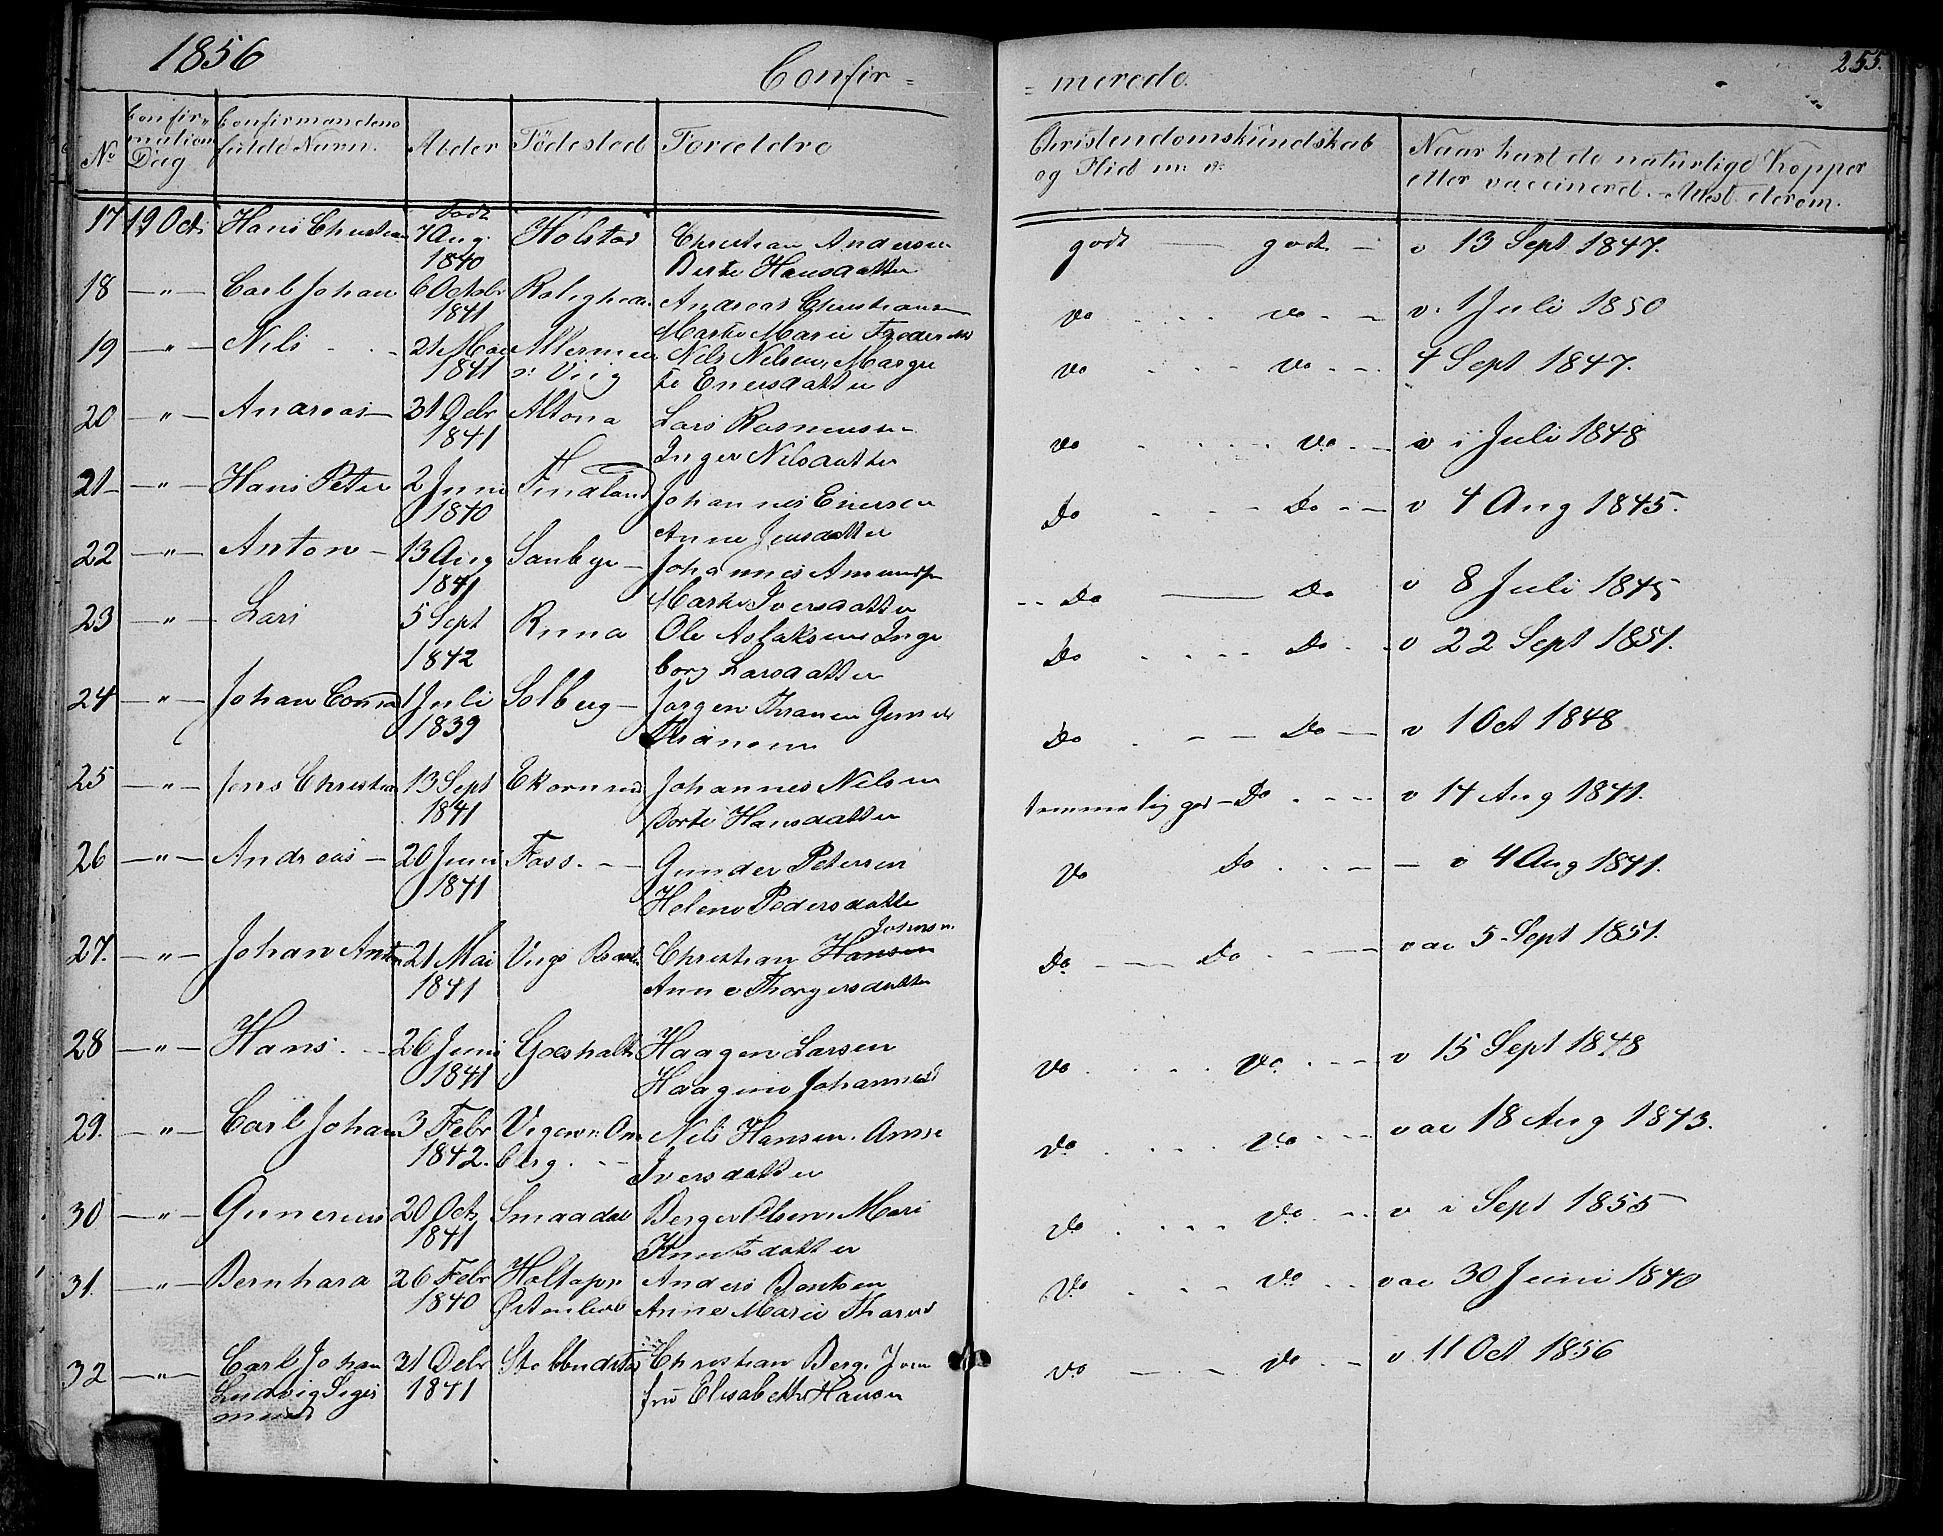 1856
Confir=
=merede.
255.
No
Confir=mations Dag
Confirmandens fulde Navn.
Alder
Födested
Forældre
Christendomskundskab og Flid m: v:
Naar havt de naturlige Kopper eller vaccinerd. Attest derom.
17 19 Oct: Hans Christian Födt 7 Aug. 1840 Holstad Christian Andersen Berte Hansdatter godt — godt — v 13 Sept 1847.
18 —"— Carl Johan 6 Octobr 1841 Roligheden Andreas Christiansen Marthe Marie Fredriksd Do - - - Do - — v. 1 Juli 1850
19 —"— Nils - - 21 Mai 1841 Nils Nilsen, Margrete Enersdatter Do - - - Do - - - 4 Sept 1847.
20 —"— Andreas — 31 Debr 1841 Altona Lars Rasmussen Inger Nilsdatter Do - - - Do - - v i Juli 1848
21 —"— Hans Peter 2 Juni 1840 Findland Johannes Enersen Anne Jensdatter Do - - - Do - - v 4 Aug 1845.
22 —"— Anton — 13 Aug 1841 Saubye — Johannes Amundsen Marthe Iversdatter -- Do — Do v 8 Juli 1845
23 —"— Lars 5 Sept 1842 Runa Ole Aslaksen Ingeborg Larsdatter Do - - - - Do - - v 22 Sept 1851.
24 —"— Johan Conrad 1 Juli 1839 Solberg — Jørgen Thranen Thranem Do - — — Do — v 1 Oct 1848
25 —"— Jens Christian 13 Sept 1841 Ekornrud Johannes Nilsen Dorte Hansdatter temmelig god — Do - - - v 14 Aug 1841.
26 —"— Andreas — 20 Juni 1841 Foss. - — Gunder Petersen Helene Pedersdatter Do Do - - - — v 4 Aug 1841.
27. —"— Johan Anton 21 Mai 1841 Christian Hansen Johnsen Anne Thorgersdatter Do — — Do - — vac 5 Sept 1851.
28 —"— Hans. - - 26 Juni 1841 Haagen Larsen Haagine Johannesd Do - - - - Do - - - v 15 Sept 1848
29. —"— Carl Johan 3 Febr 1842. Nils Hansen. Anne Iversdatter Do - - - - Do - - - vac 18 Aug 1843.
30 —"— Gunerius 20 Oct 1841 Smaadal Berger Olsen Mari Knutsdatter Do - - - - Do - - v i Sept 1855
31. —"— Bernhard 26 Febr 1840 Anders Bentsen Anne Marie Do - - - Do - - vac 30 Juni 1840
32 —"— Carl Johan Ludvig Sigismund 31 Debr 1841 Christian Berg. Jomfru Elisabeth Hansen Do — — - Do - — v. 11 Oct 1856